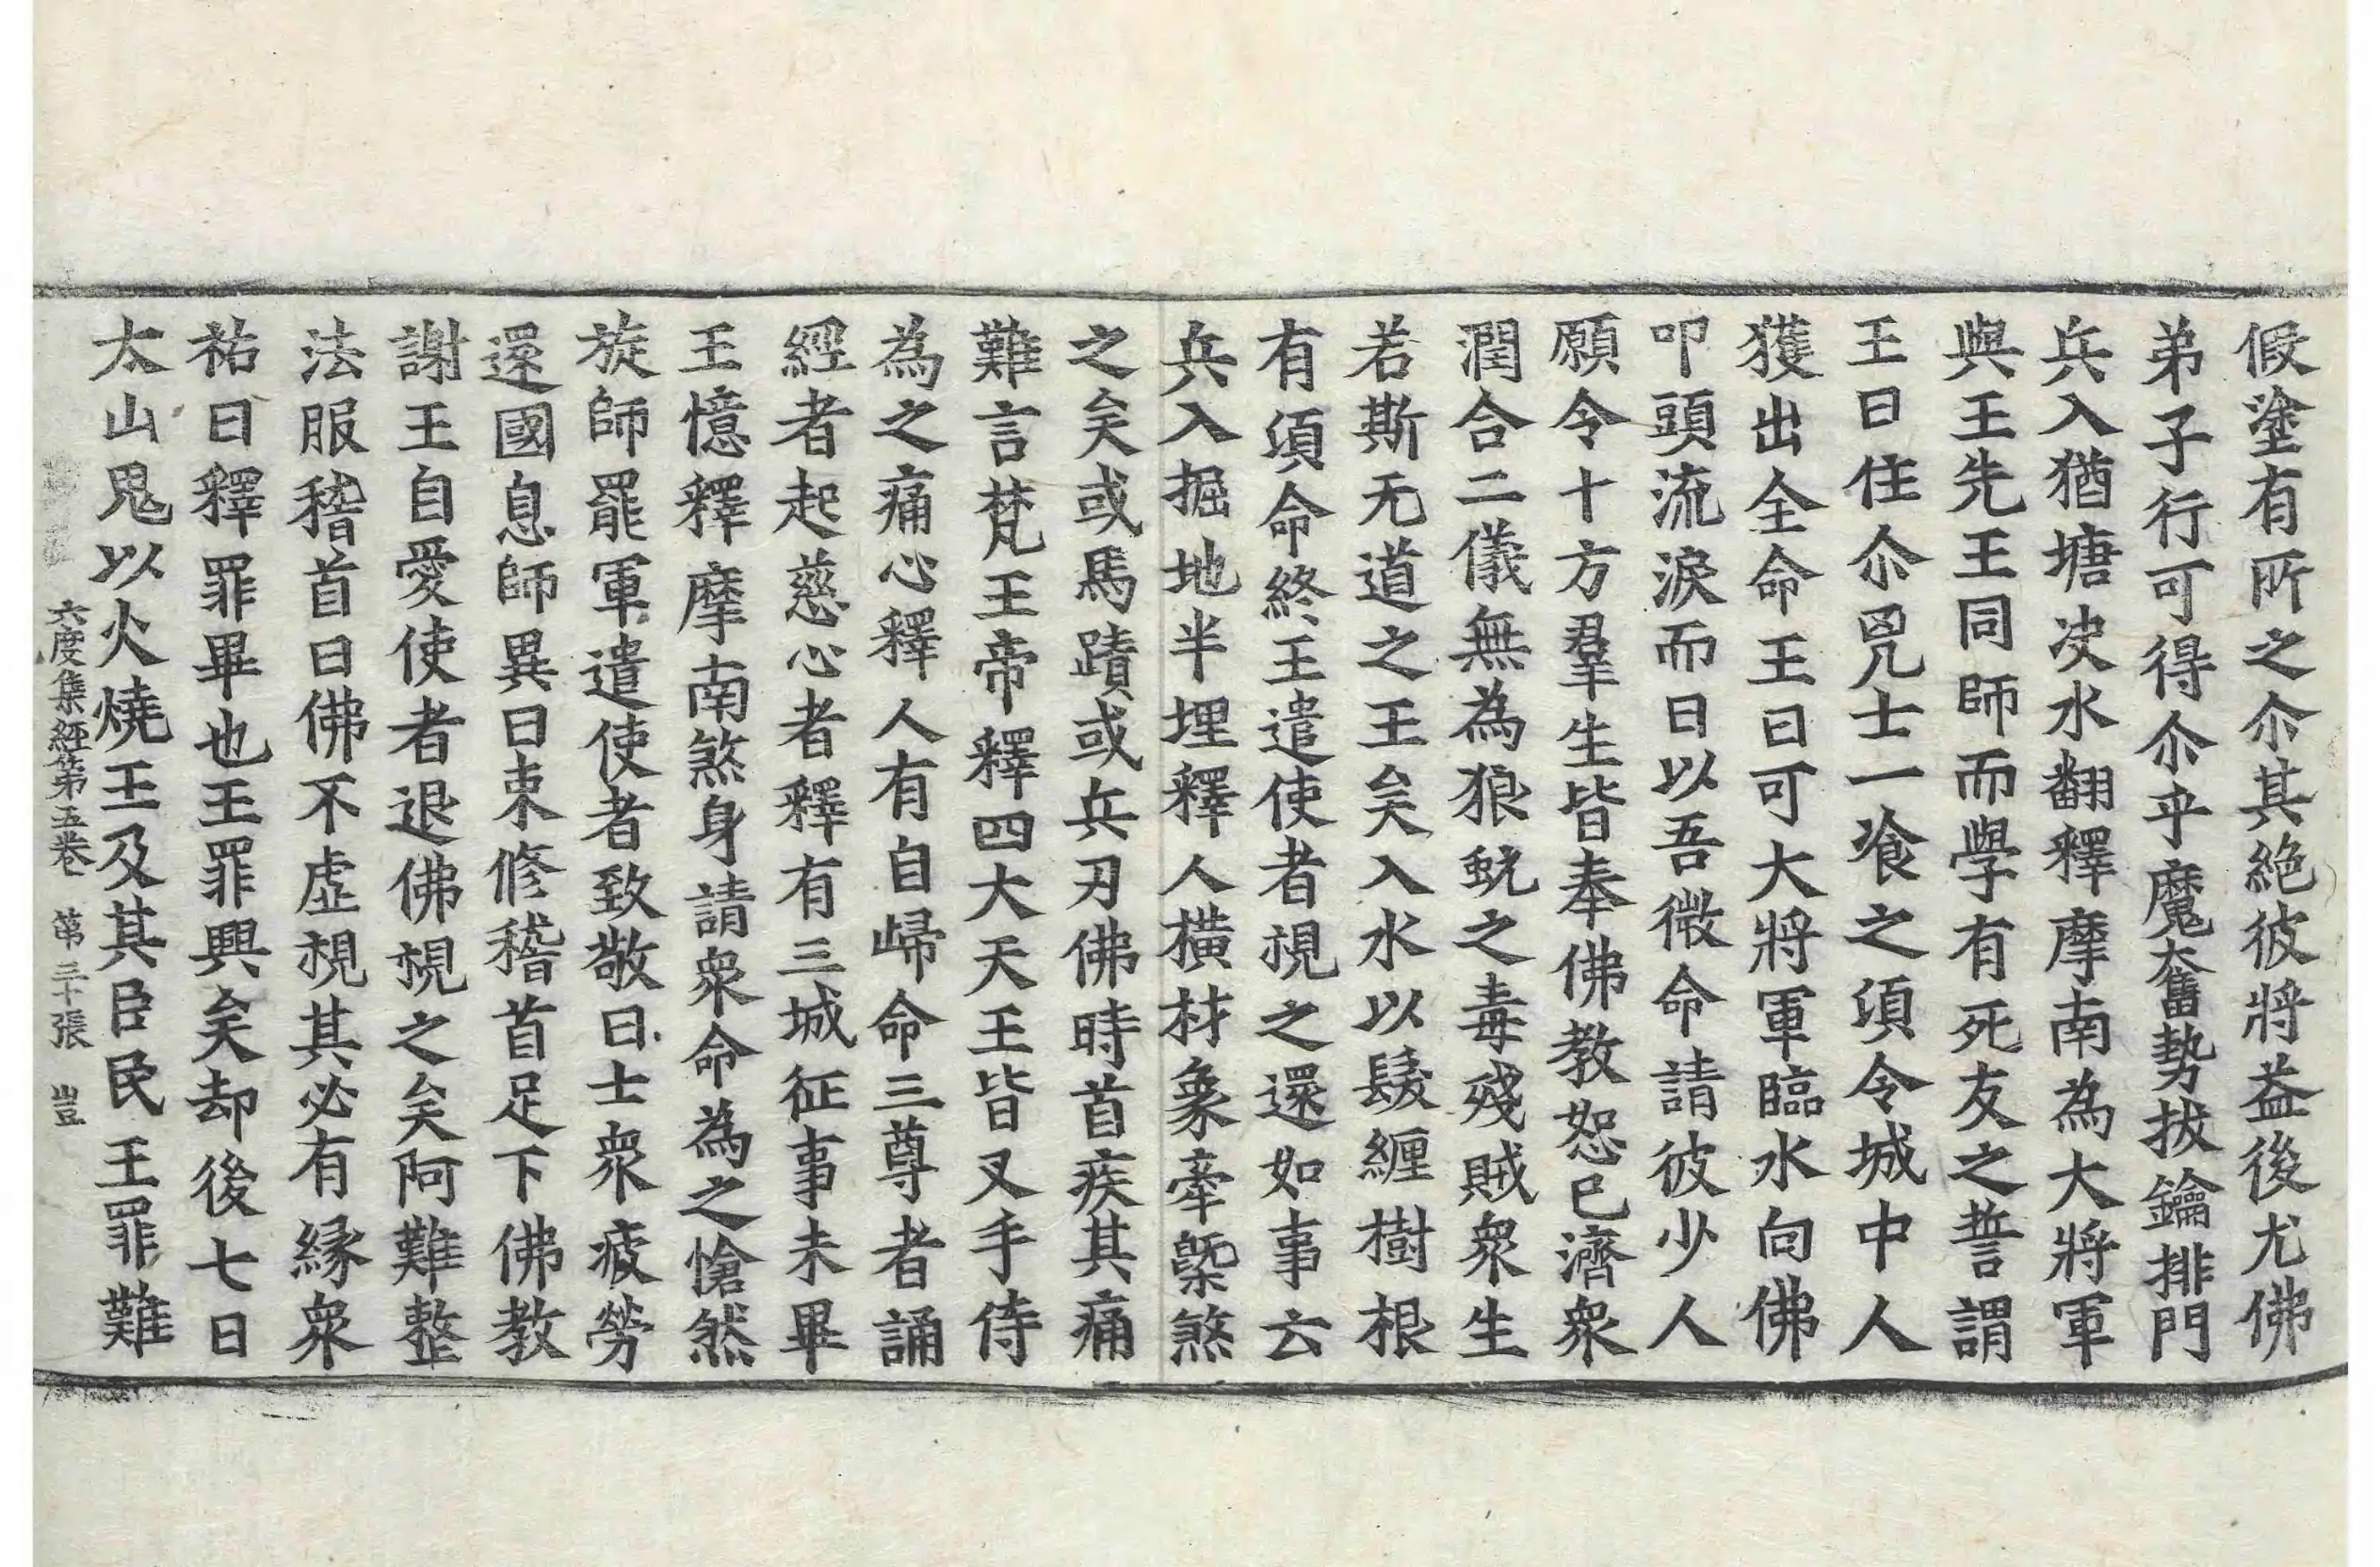 假塗有所之尒其絶彼將益後尤佛
弟子行可得尒乎魔奮勢拔鑰排門
兵入猶塘決水翻釋摩南為大將軍
與王先王同師而學有死友之誓謂
王曰住尒㐫士一飡之湏令城中人
獲出全命王曰可大將軍臨水向佛
叩頭流淚而曰以吾微命請彼少人
願令十方羣生皆奉佛教恕已濟衆
潤合二儀無為狼蚖之毒殘賊衆生
若斯无道之王矣入水以髮纏樹根
有湏命終王遣使者視之還如事云
兵入掘地半埋釋人橫材象牽槩煞
之矣或馬蹟或兵刃佛時首疾其痛
難言梵王帝釋四大天王皆叉手侍
為之痛心釋人有自歸命三尊者誦
經者起慈心者釋有三城征事未畢
王憶釋摩南煞身請衆命為之愴然
旋師罷軍遣使者致敬曰士衆疲勞
還國息師異日束修稽首足下佛教
謝王自愛使者退佛視之矣阿難整
法服稽首曰佛不虛視其必有緣衆
祐曰釋罪畢也王罪興矣却後七日
太山鬼以火燒王及其臣民王罪難
六度集經第五卷 第三十張 豈